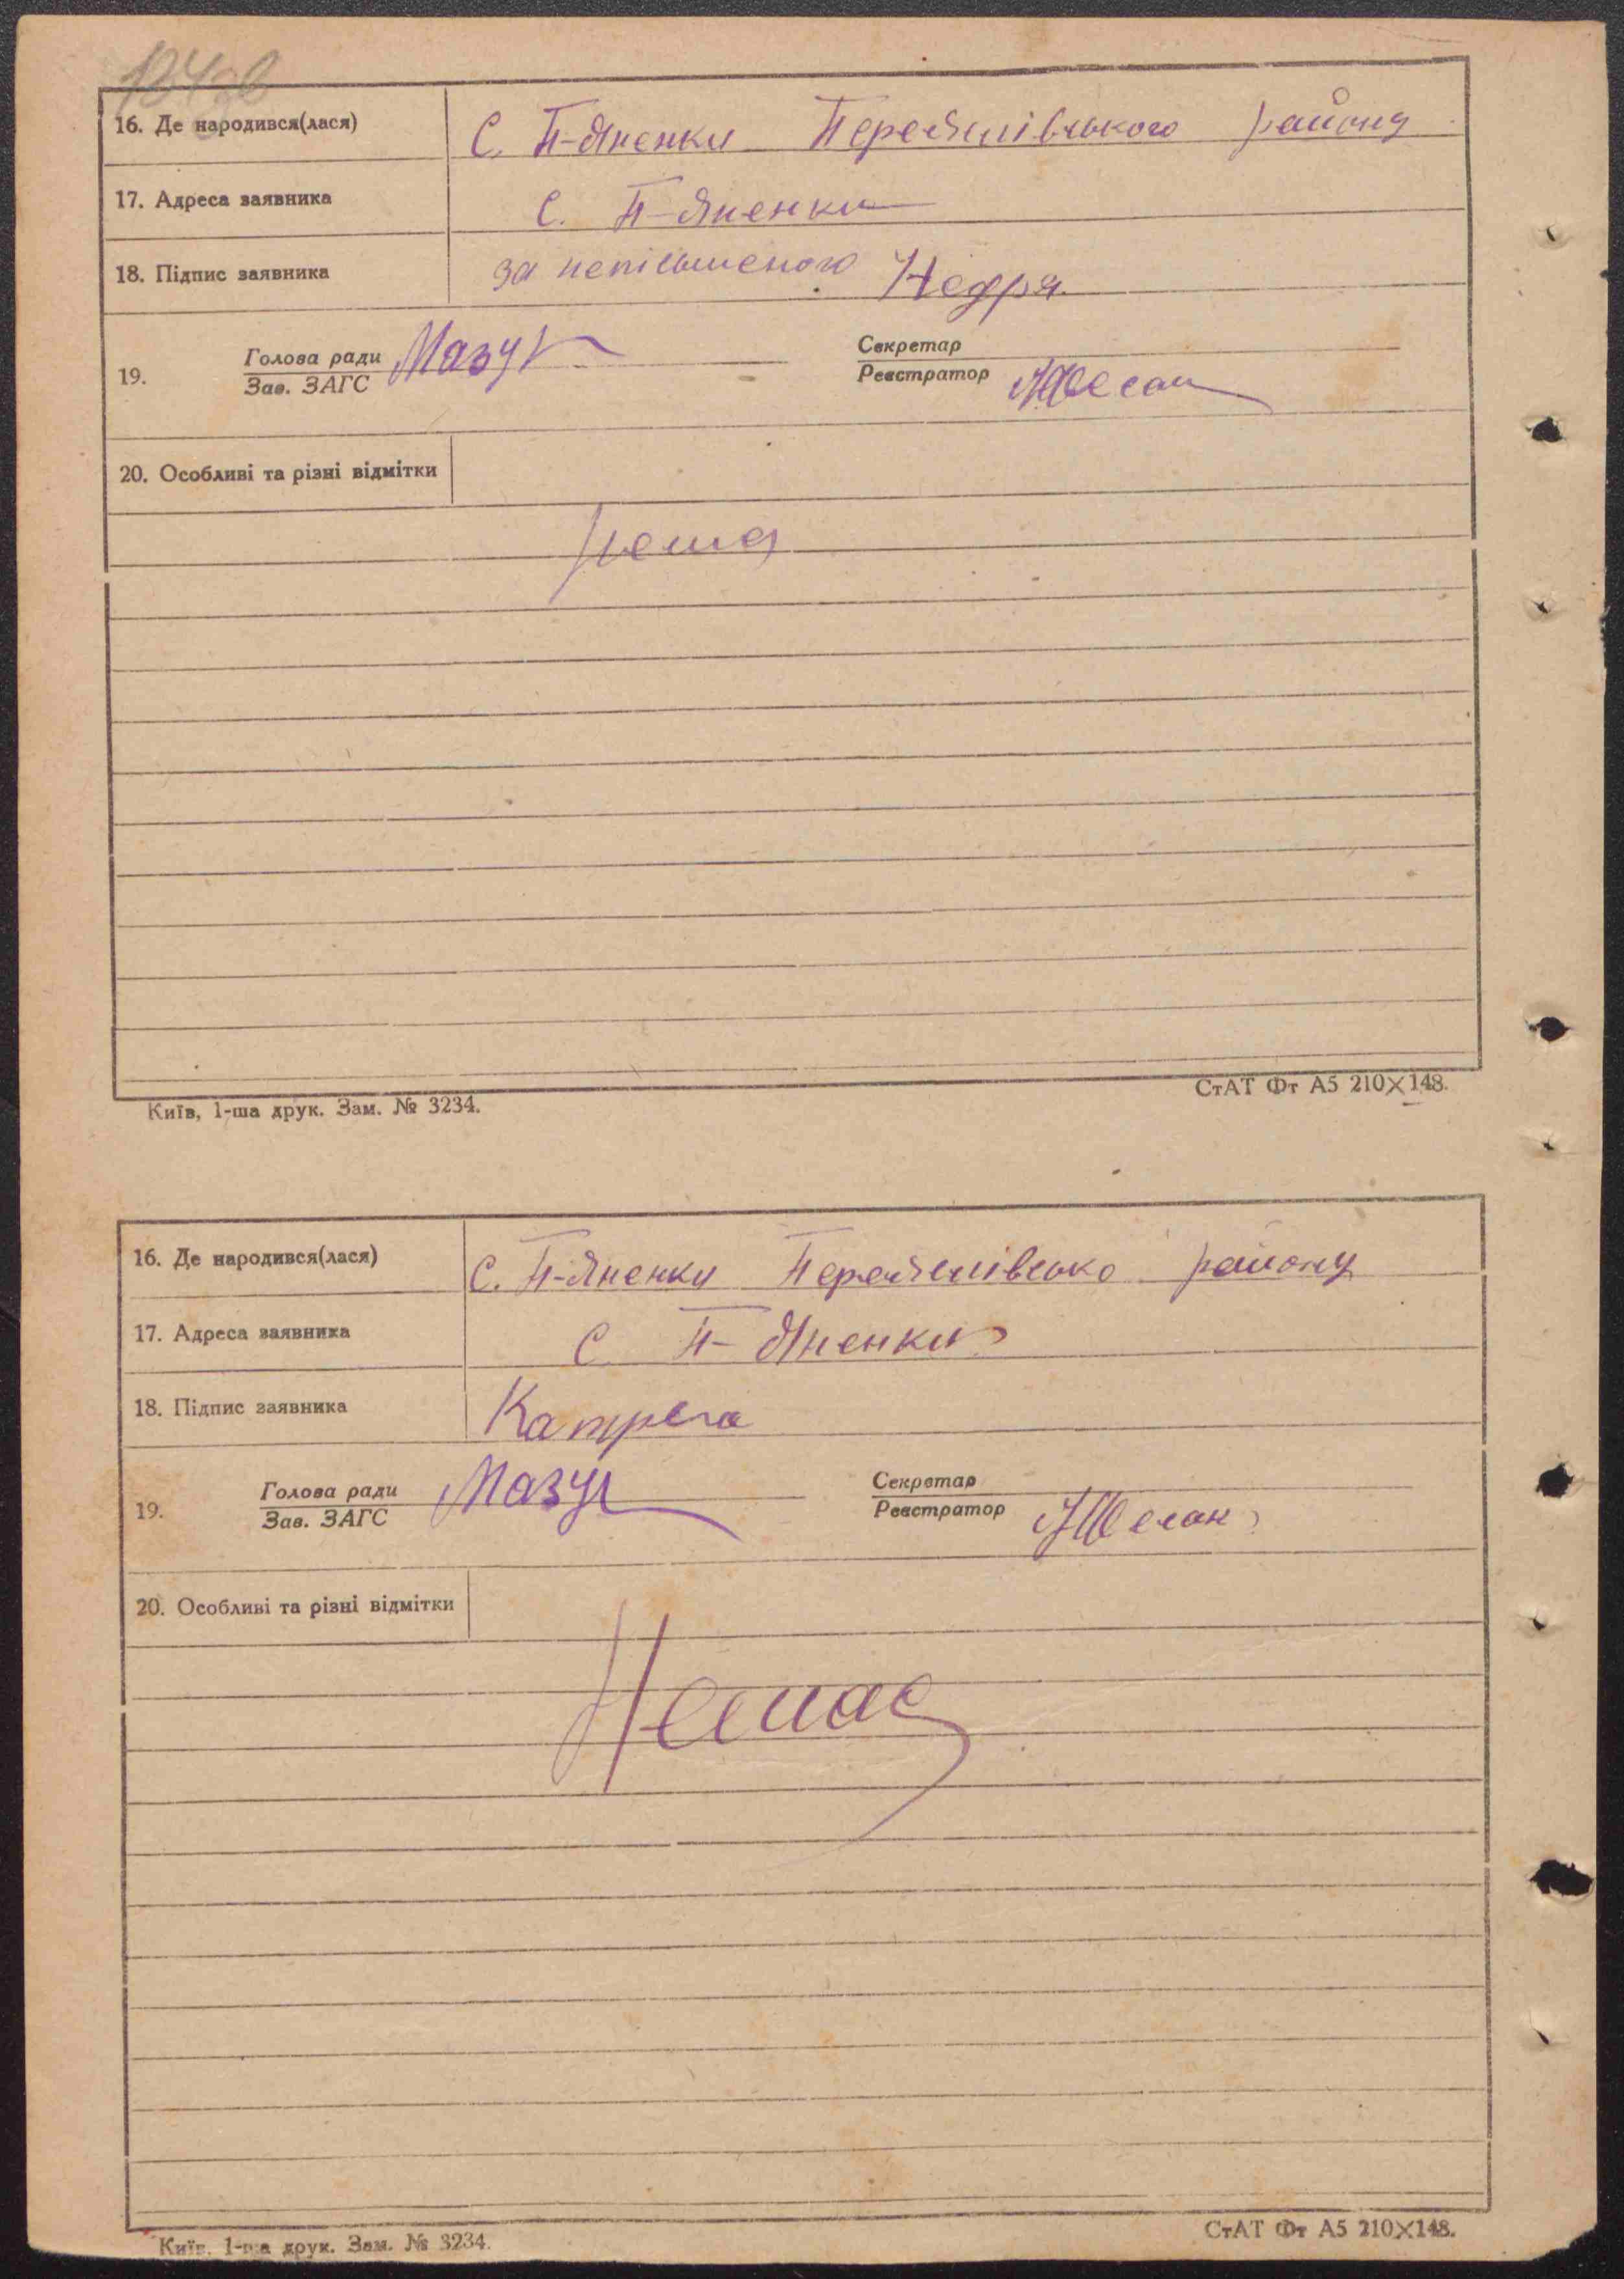 134 зв
16. Де народився(лася) С. П-Яненки Переяслівського району
17. Адреса заявника С. П-Яненки
18. Підпис заявника за неписьменого Недря
19. Голова ради Мазур Секретар
Зав. ЗАГС Реєстратор
20. Особливі та різні відмітки
Нема
Київ, 1-ша друк. Зам. № 3234. СтАТ Фт А5 210×148.
16. Де народився(лася) С. П-Яненки Переяслівсько району
17. Адреса заявника С П-Яненки
18. Підпис заявника
19. Голова ради Мазур Секретар
Зав. ЗАГС Реєстратор
20. Особливі та різні відмітки
Немає
Київ, 1-ша друк. Зам. № 3234. СтАТ Фт А5 210×148.